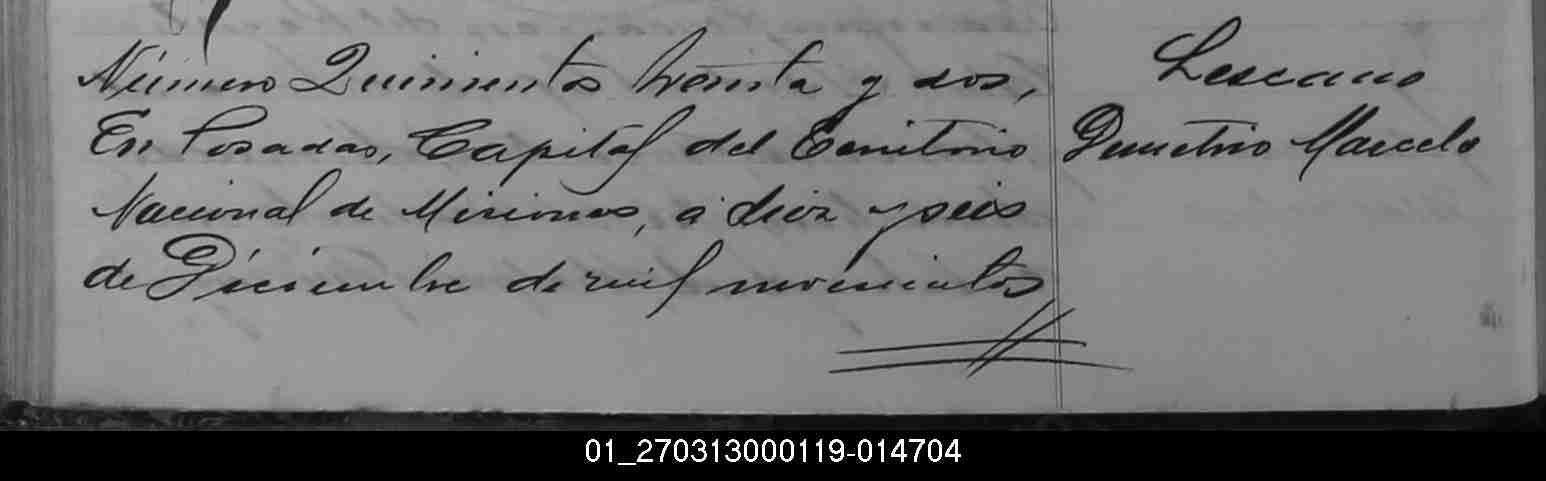 Número Quinientos treinta y dos,
En Posadas, Capital del Territorio
Nacional de Misiones, a diez y seis
de Diciembre de mil novecientos
Lescano
Demetrio Marcelo
01_270313000119-014704